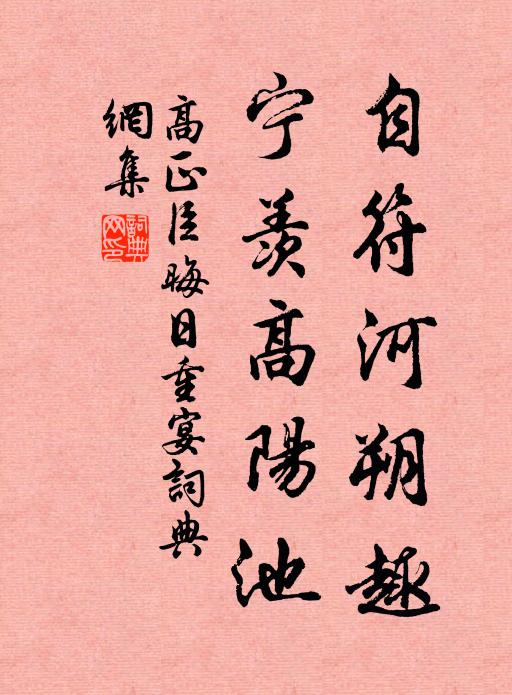 自符河朔趣
宁羨高陽池
高正臣晦日重宴詞典
網集
詞典網印